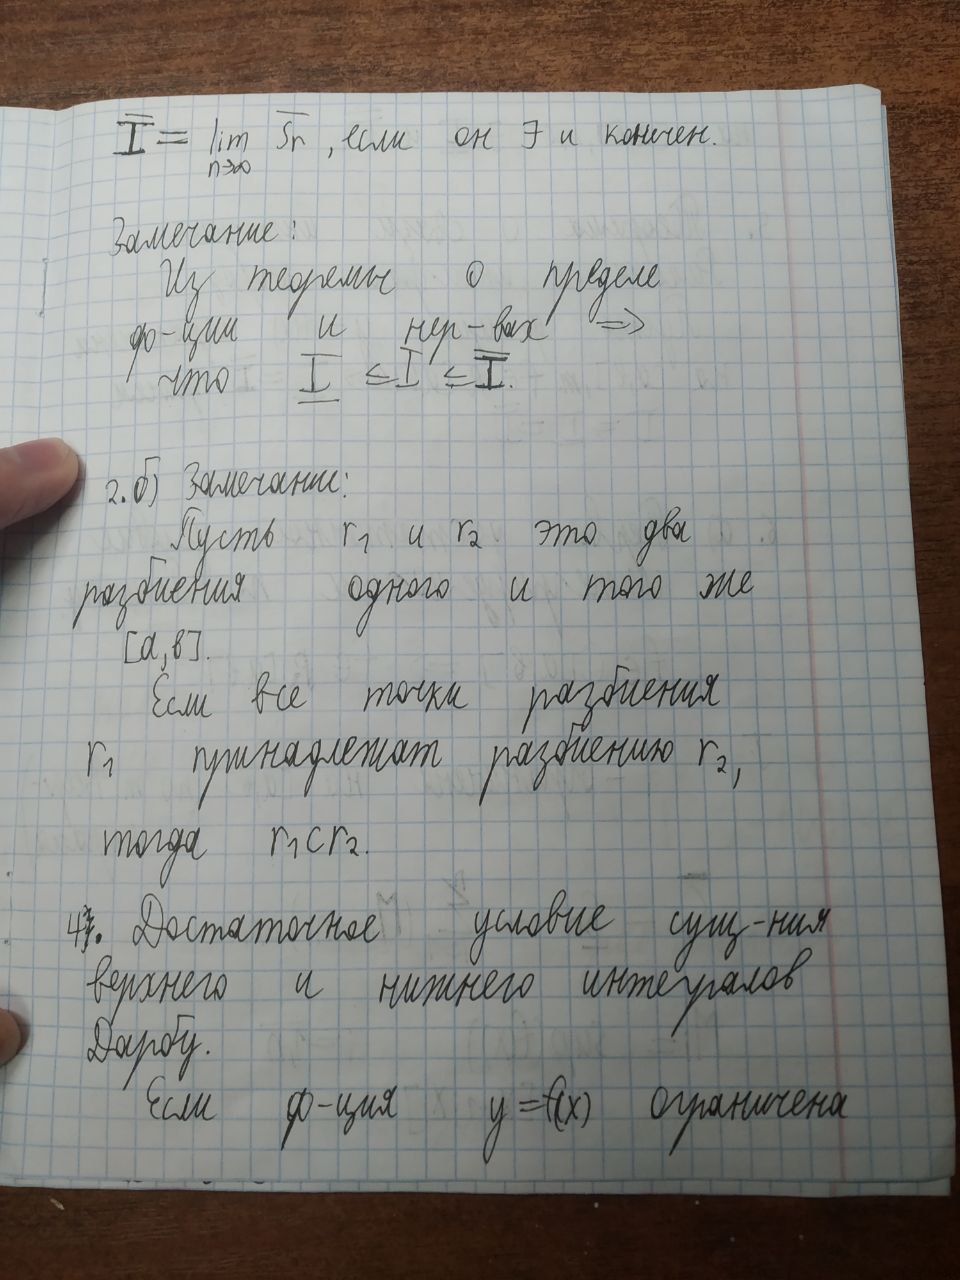 I̿ = lim S̅n, если он ∃ и конечен.
n→∞
Замечание:
Из теоремы о пределе
ф-ции и нер-вах ⇒
что I̲ ≤ I ≤ I̿.
2.б) Замечание:
Пусть r₁ и r₂ это два
разбиения одного и того же
[a,b].
Если все точки разбиения
r₁ принадлежат разбиению r₂,
тогда r₁⊂r₂.
4. Достаточное условие сущ-ния
верхнего и нижнего интегралов
Дарбу.
Если ф-ция y=f(x) ограничена